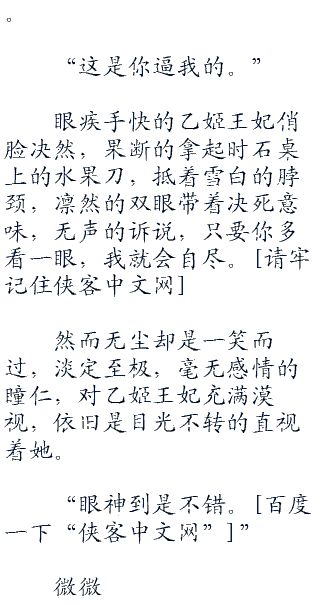 。
“这是你逼我的。”
眼疾手快的乙姬王妃俏
脸决然，果断的拿起时石桌
上的水果刀，抵着雪白的脖
颈，凛然的双眼带着决死意
味，无声的诉说，只要你多
看一眼，我就会自尽。[请牢
记住侠客中文网]
然而无尘却是一笑而
过，淡定至极，毫无感情的
瞳仁，对乙姬王妃充满漠
视，依旧是目光不转的直视
着她。
“眼神到是不错。[百度
一下“侠客中文网”]”
微微